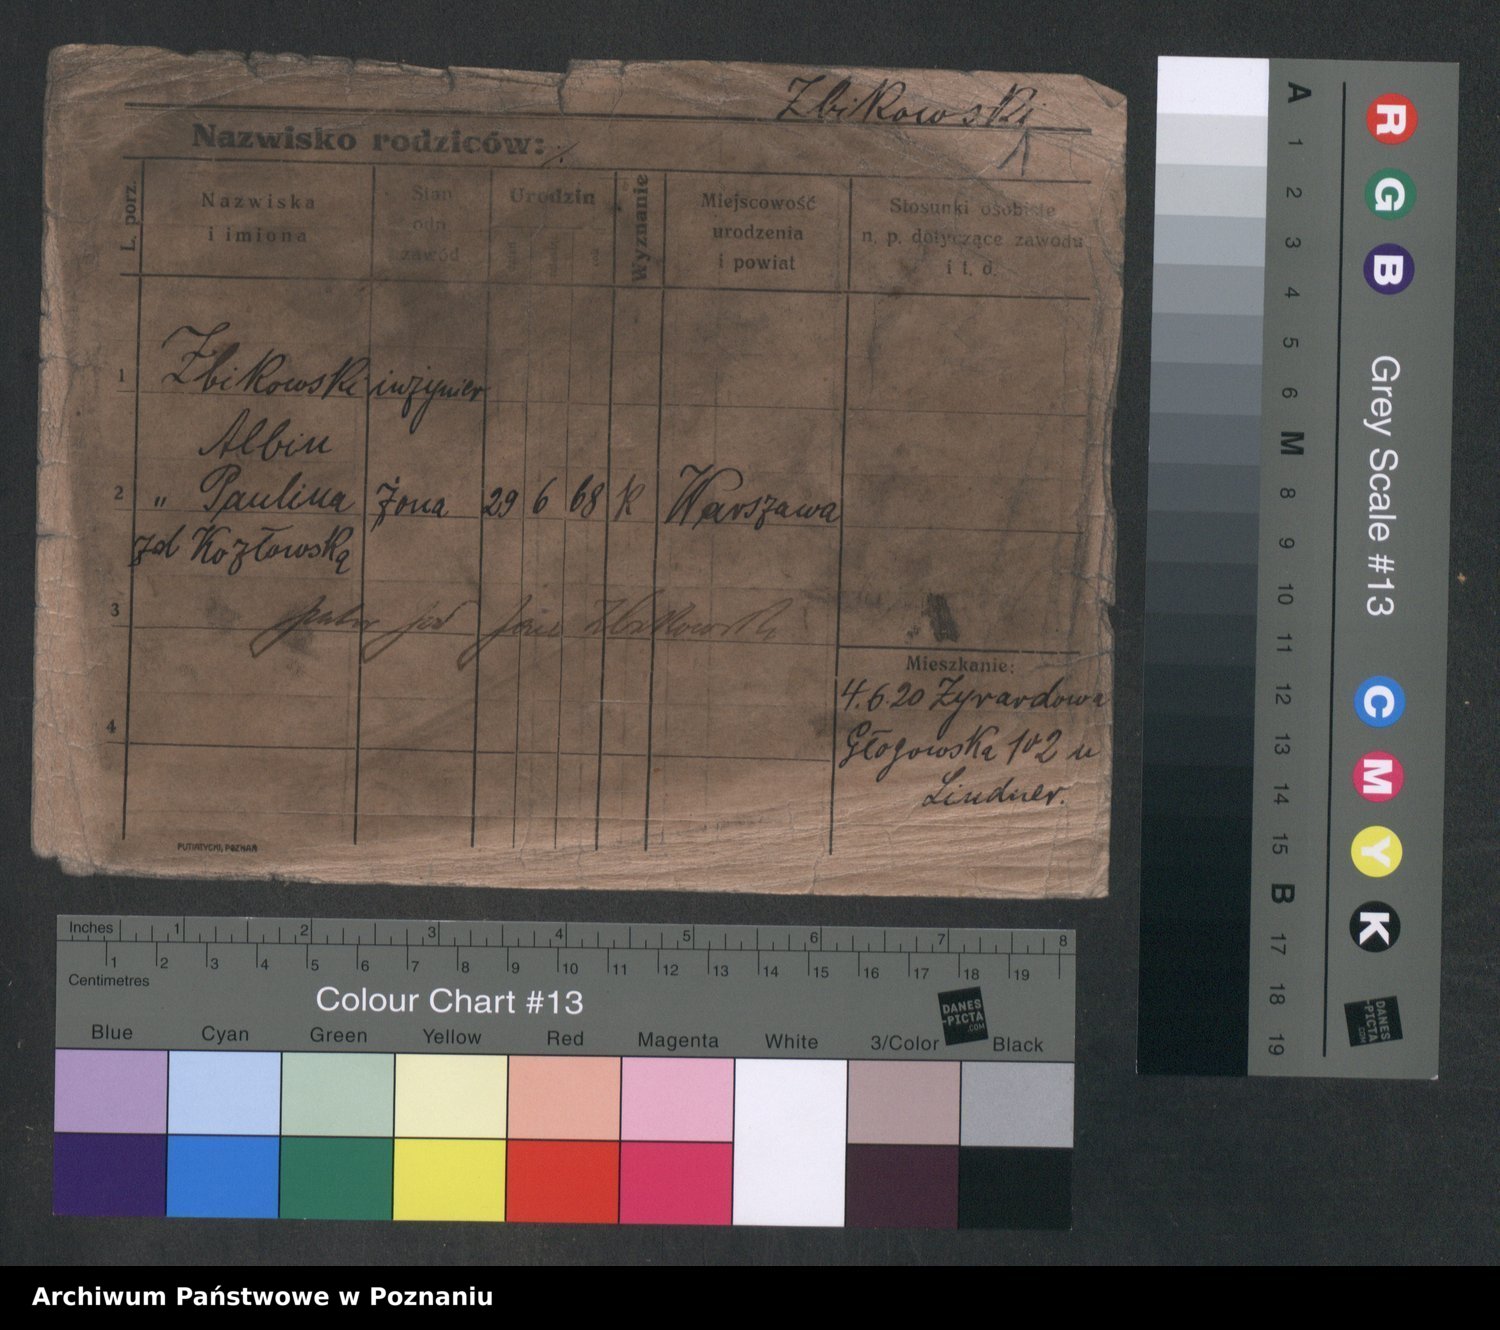 Zbikowski
Nazwisko rodziców: ./.
L. porz.
Nazwiska
i imiona
Stan
odn.
zawód
Urodzin
Wyznanie
Miejscowość
urodzenia
i powiat
Stosunki osobiste
n. p. dotyczące zawodu
i t. d.
1 Zbikowski inżynier
Albin
2 „ Paulina żona 29 6 68 k Warszawa
zd Kozłowską
3 Zbikowski
4
Mieszkanie:
4.6.20 Zyrardowa
Głogowska 102 u
Lindner.
PUTIATYCKI, POZNAŃ
A 1 2 3 4 5 6 M 8 9 10 11 12 13 14 15 B 17 18 19
R G B
Grey Scale #13
C M Y K
DANES
-PICTA
.COM
Inches 1 2 3 4 5 6 7 8
1 2 3 4 5 6 7 8 9 10 11 12 13 14 15 16 17 18 19
Centimetres
Colour Chart #13
DANES
-PICTA
.COM
Blue Cyan Green Yellow Red Magenta White 3/Color Black
Archiwum Państwowe w Poznaniu